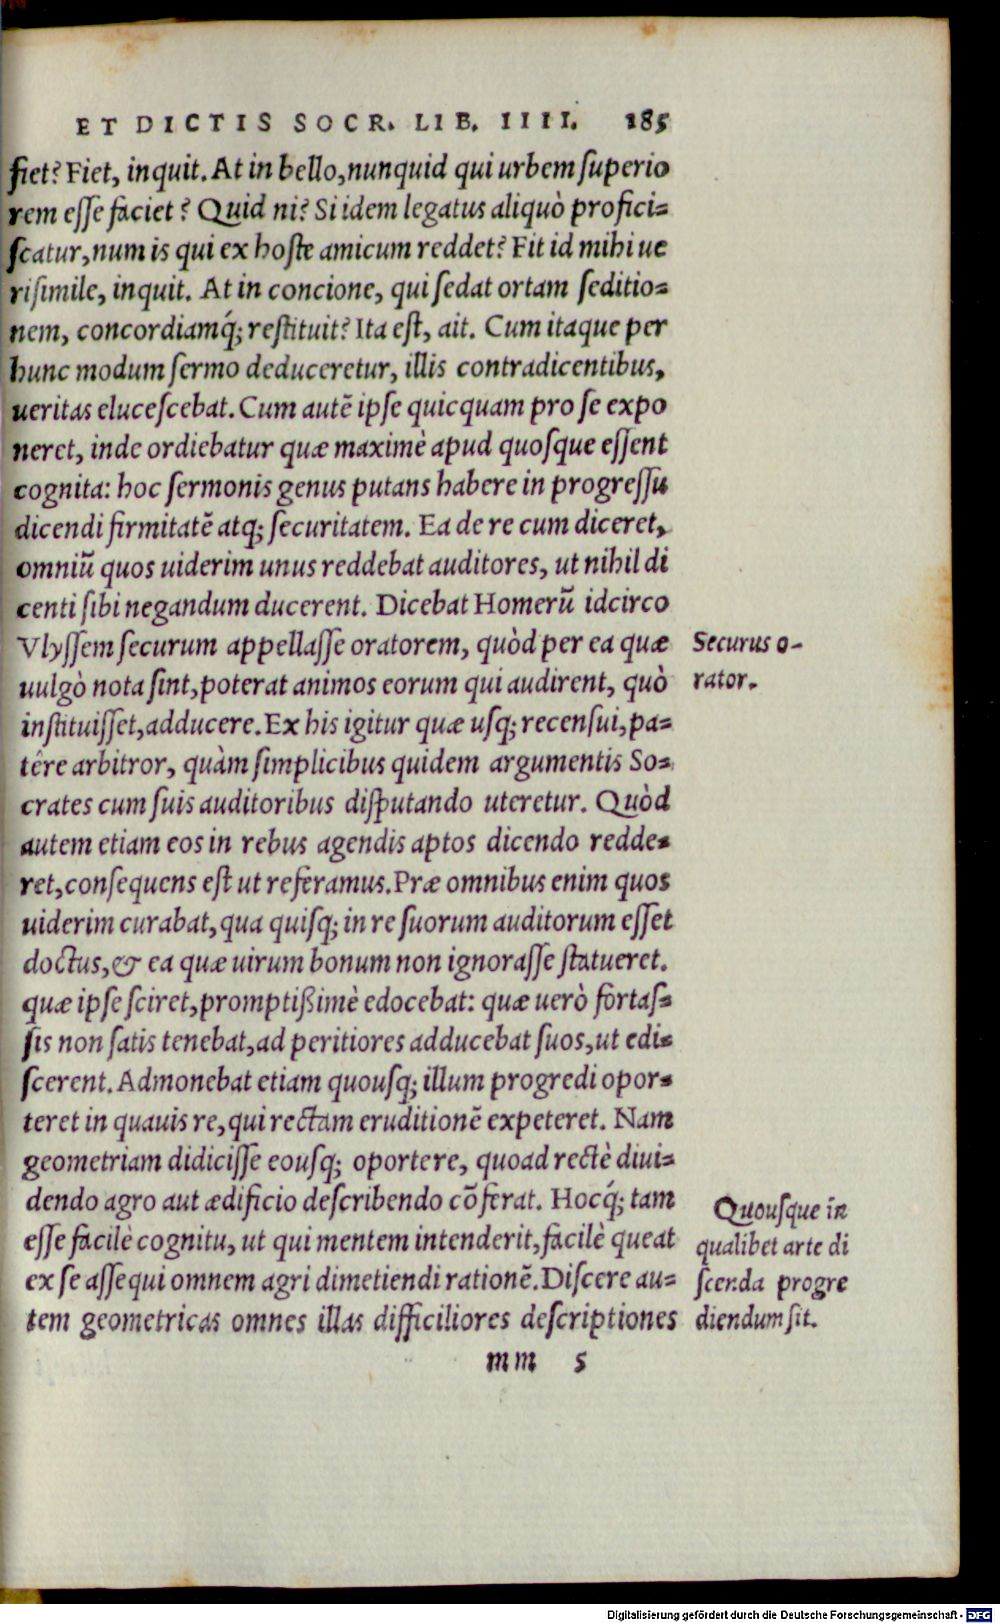 ET DICTIS SOCR. LIB. IIII. 185
fiet? Fiet, inquit. At in bello, nunquid qui urbem superio
rem esse faciet? Quid ni? Si idem legatus aliquò profici=
scatur, num is qui ex hoste amicum reddet? Fit id mihi ue
risimile, inquit. At in concione, qui sedat ortam seditio=
nem, concordiamq́; restituit? Ita est, ait. Cum itaque per
hunc modum sermo deduceretur, illis contradicentibus,
ueritas elucescebat. Cum autē ipse quicquam pro se expo
neret, inde ordiebatur quæ maximè apud quosque essent
cognita: hoc sermonis genus putans habere in progressu
dicendi firmitatē atq; securitatem. Ea de re cum diceret,
omniū quos uiderim unus reddebat auditores, ut nihil di
centi sibi negandum ducerent. Dicebat Homerū idcirco
Vlyssem securum appellasse oratorem, quòd per ea quæ
uulgò nota sint, poterat animos eorum qui audirent, quò
instituisset, adducere. Ex his igitur quæ usq; recensui, pa=
têre arbitror, quàm simplicibus quidem argumentis So=
crates cum suis auditoribus disputando uteretur. Quòd
autem etiam eos in rebus agendis aptos dicendo redde=
ret, consequens est ut referamus. Præ omnibus enim quos
uiderim curabat, qua quisq; in re suorum auditorum esset
doctus, & ea quæ uirum bonum non ignorasse statueret.
quæ ipse sciret, promptißimè edocebat: quæ uerò fortas=
sis non satis tenebat, ad peritiores adducebat suos, ut edi=
scerent. Admonebat etiam quousq; illum progredi opor=
teret in quauis re, qui rectam eruditionē expeteret. Nam
geometriam didicisse eousq; oportere, quoad rectè diui=
dendo agro aut ædificio describendo cōferat. Hocq́; tam
esse facilè cognitu, ut qui mentem intenderit, facilè queat
ex se assequi omnem agri dimetiendi rationē. Discere au=
tem geometricas omnes illas difficiliores descriptiones
mm 5
Securus o-
rator.
Quousque in
qualibet arte di
scenda progre
diendum sit.
Digitalisierung gefördert durch die Deutsche Forschungsgemeinschaft - DFG